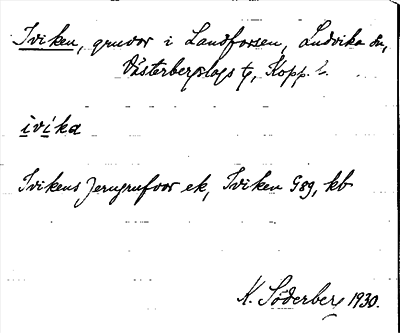 Iviken, gruvor i Landforsen, Ludvika sn,
Västerbergslags tg, Kopp. l.
ivika
Ivikens Jerngrufvor ek, Iviken Gsg, kb
K. Söderberg 1930.